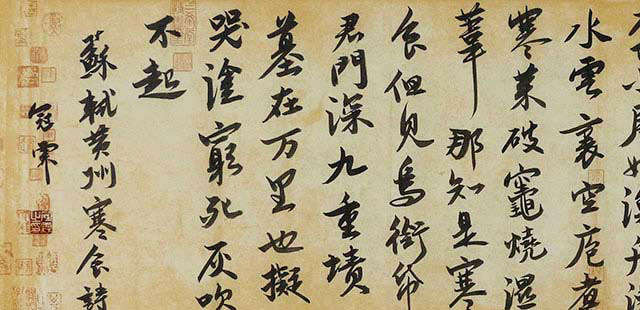 水雲裏空庖煮
寒菜破竈燒濕
葦那知是寒
食但見烏銜帋
君門深九重墳
墓在万里也擬
哭塗窮死灰吹
不起
蘇軾黄州寒食詩